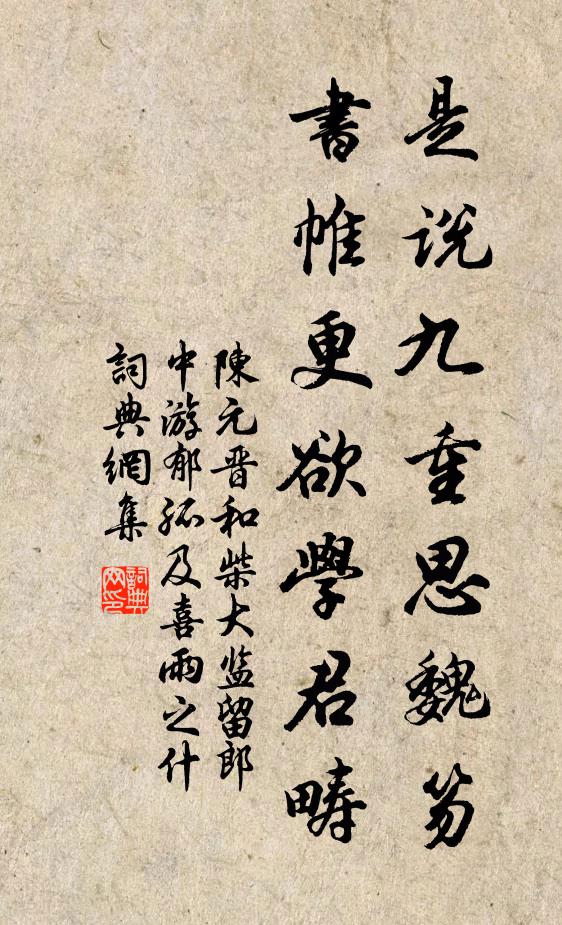 是說九重思魏笏
書帷更欲學君疇
陳元晋和柴大监留郎
中游郁孤及喜雨之什
詞典網集
詞典
网印